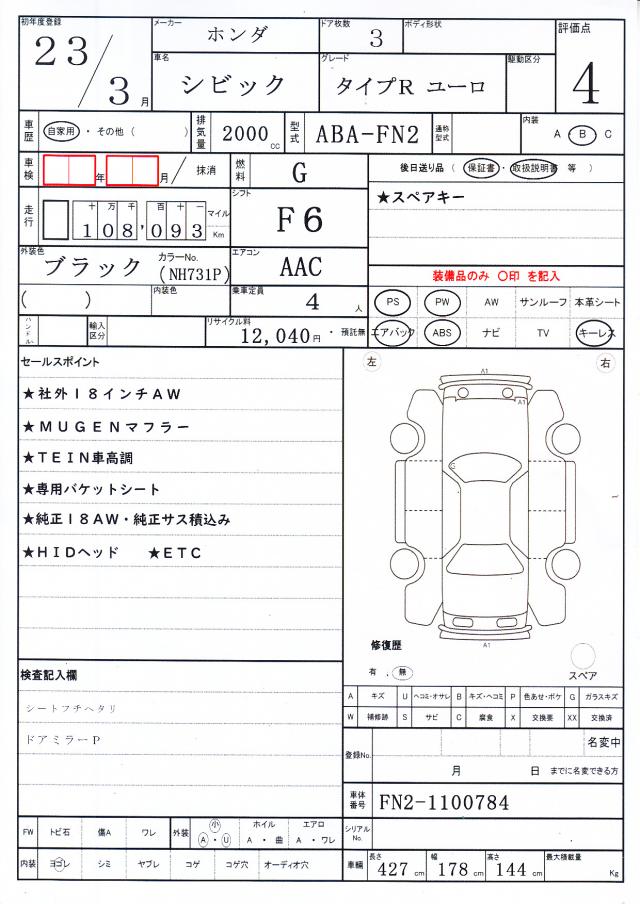 初年度登録 メーカー ホンダ ドア枚数 3 ボディ形状 評価点
23/3月 車名 シビック グレード タイプR ユーロ 駆動区分 4
車歴 自家用・その他( ) 排気量 2000cc 型式 ABA-FN2 通称型式 内装 A・B C
車検 年 月/抹消 燃料 G 後日送り品(保証書・取扱説明書 等)
走行 十万千百十一 108,093 マイル Km シフト F6 ★スペアキー
外装色 ブラック カラーNo. (NH731P) エアコン AAC 装備品のみ 〇印 を記入
( ) 内装色 乗車定員 4人 PS PW AW サンルーフ 本革シート
ハンドル 輸入区分 リサイクル料 12,040円・預託無 エアバック ABS ナビ TV キーレス
セールスポイント 左 右
★社外18インチAW
★MUGENマフラー
★TEIN車高調
★専用バケットシート
★純正18AW・純正サス積込み
★HIDヘッド ★ETC
A1
A1
C
A1
修復歴
有 . 無 スペア
検査記入欄
シートフチヘタリ
ドアミラーP
A キズ U ヘコミ・オサレ B キズ・ヘコミ P 色あせ・ボケ G ガラスキズ
W 補修跡 S サビ C 腐食 X 交換要 XX 交換済
登録No. 名変中
月 日 までに名変できる方
車体番号 FN2-1100784
FW トビ石 傷A ワレ 外装 小 A・U ホイル A・曲 エアロ A・ワレ シリアルNo.
内装 ヨゴレ シミ ヤブレ コゲ コゲ穴 オーディオ穴 車輌 長さ 427cm 幅 178cm 高さ 144cm 最大積載量 Kg